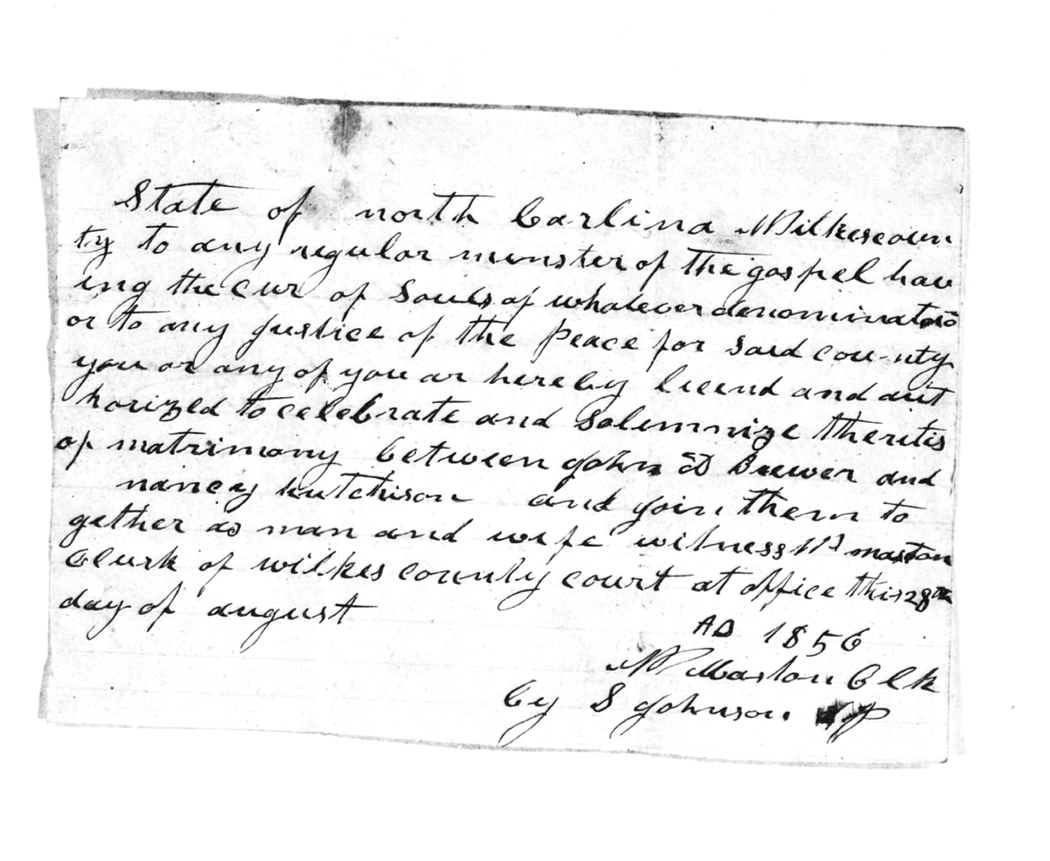 State of north Carlina Wilkescoun
ty to any regular munster of the gospel hav
ing the cur of Souls of whatever denominatio
or to any justice of the peace for said county
you or any of you ar hereby licend and aut
horized to celebrate and Solemnize the rites
of matrimony between john D Brewer and
nancy hutchison and join them to
gether as man and wife witness maston
Clerk of wilkes county court at office this 28th
day of august
AD 1856
Maston Clk
by S Johnson